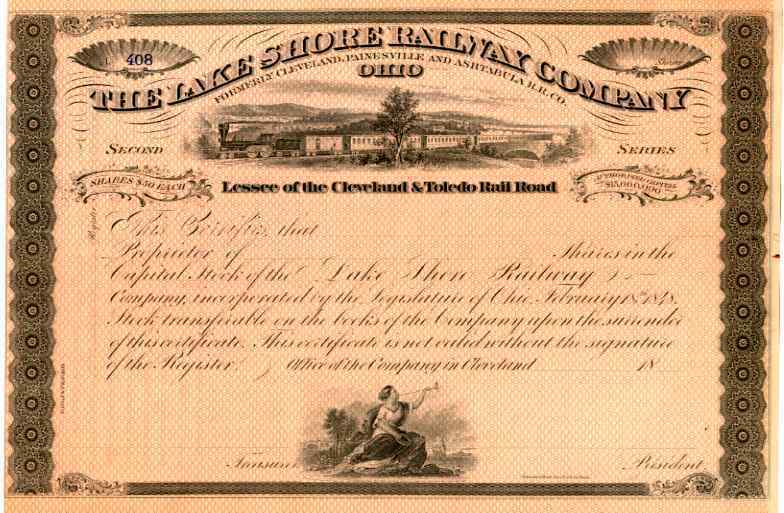 408
THE LAKE SHORE RAILWAY COMPANY
FORMERLY CLEVELAND, PAINESVILLE AND ASHTABULA R.R. CO.
OHIO
SECOND SERIES
SHARES $50 EACH
Lessee of the Cleveland & Toledo Rail Road
AUTHORIZED CAPITAL
$15,000,000
This Certifies that
Proprietor of Shares in the
Capital Stock of the Lake Shore Railway
Company, incorporated by the Legislature of Ohio February 18th 1848.
Stock transferable on the books of the Company upon the surrender
of this certificate. This certificate is not valid without the signature
of the Register. Office of the Company in Cleveland 18
Register
Treasurer
President